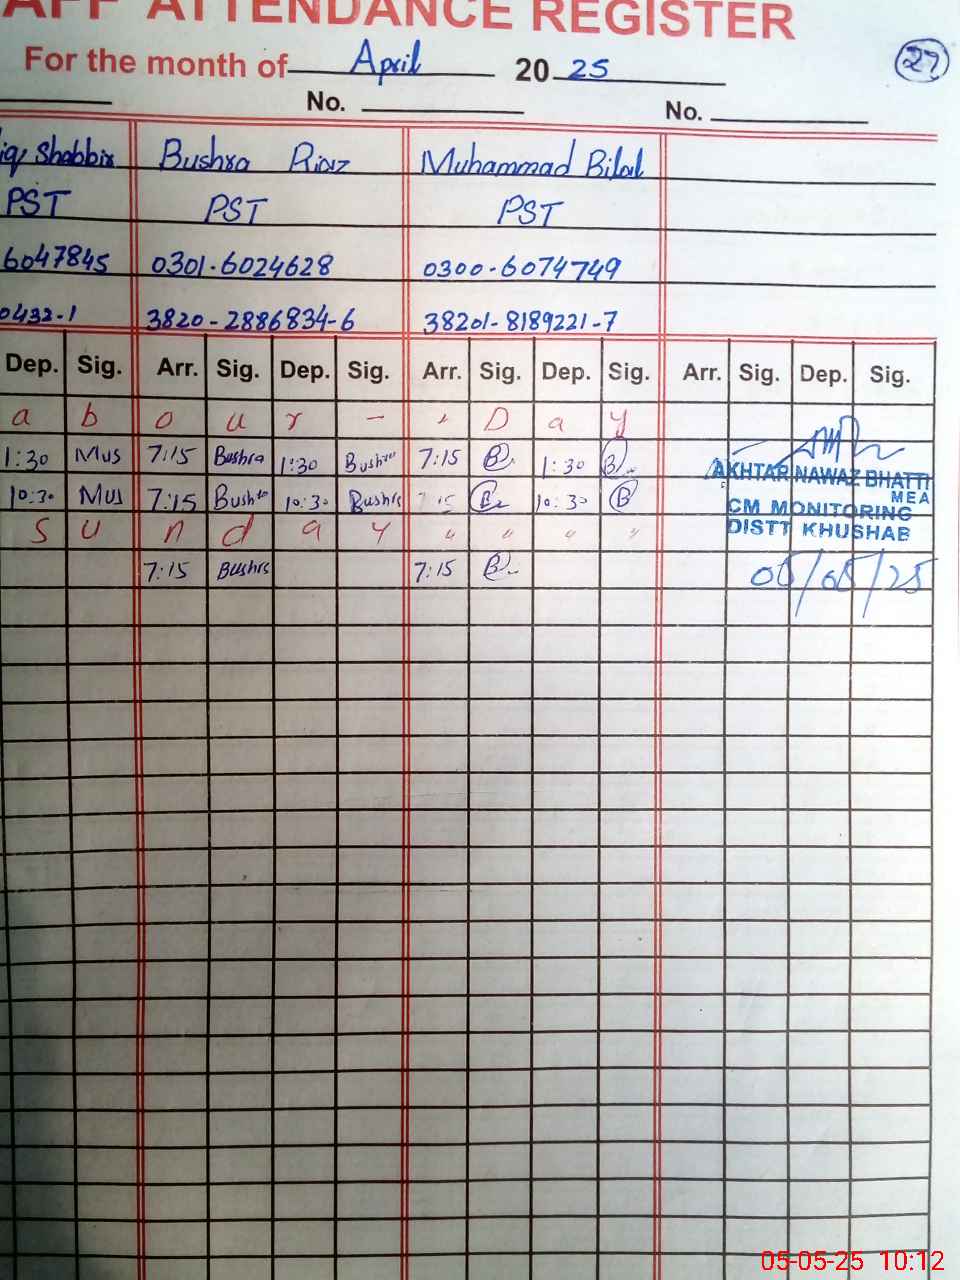 AFF ATTENDANCE REGISTER
For the month of April 2025 27
No. No.
iq Shabbir Bushra Riaz Muhammad Bilal
PST PST PST
6047845 0301-6024628 0300-6074749
0432-1 3820-2886834-6 38201-8189221-7
Dep. Sig. Arr. Sig. Dep. Sig. Arr. Sig. Dep. Sig. Arr. Sig. Dep. Sig.
a b o u r - , D a y
1:30 Mus 7:15 Bushra 1:30 Bushra 7:15 B 1:30 B
AKHTAR NAWAZ BHATTI
MEA
10:30 Mus 7:15 Bushra 10:30 Bushra 7:15 B 10:30 B
CM MONITORING
S u n d a y " " " "
DISTT KHUSHAB
7:15 Bushra 7:15 B
05/05/25
05-05-25 10:12